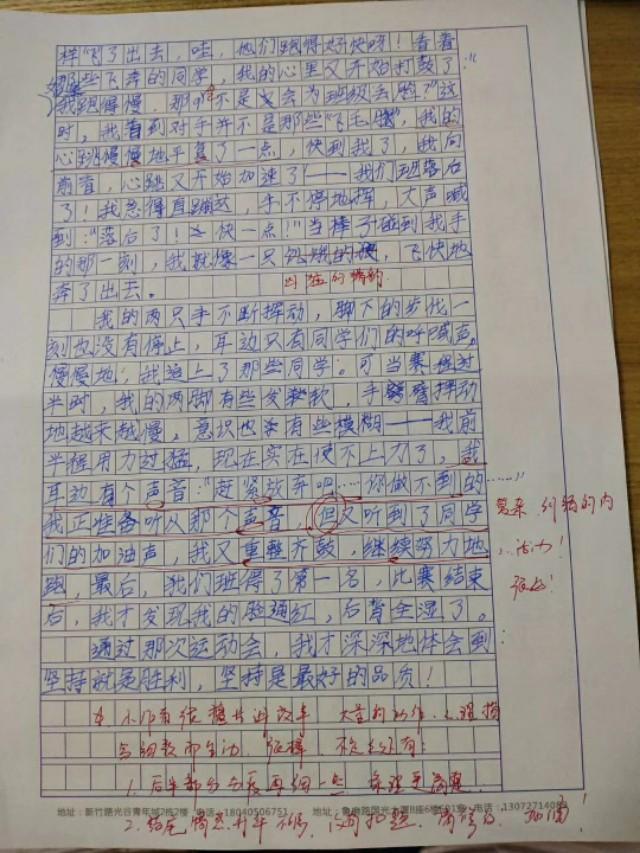 样飞了出去，哇，他们跑得好快呀！看着
那些飞奔的同学，我的心里又开始打鼓了："
我跑得慢，那 不是 会为班级丢脸？"这
时，我看到对手并不是那些"飞毛腿"，我的
心跳慢慢地平复了一点，快到我了，我向
前看，心跳又开始加速了——我们班落后
了！我急得直蹦达，手不停地挥，大声喊
到："落后了！快一点！"当棒子碰到我手
的那一刻，我就像一只饥饿的 ，飞快地
奔了出去。
凶猛的猎豹
我的两只手不断挥动，脚下的步伐一
刻也没有停止，耳边只有同学们的呼喊声。
慢慢地，我追上了那些同学。可当赛程过
半时，我的两脚有些发软，手臂挥动
地越来越慢，意识也有些模糊——我前
半程用力过猛，现在实在使不上力了，我
耳边有个声音："赶紧放弃吧……你做不到的……"
我正准备听从那个声音，但又听到了同学
们的加油声，我又重整齐鼓，继续努力地
跑，最后，我们班得了第一名，比赛结束
后，我才发现我的脸通红，后背全湿了。
通过那次运动会，我才深深地体会到：
坚持就是胜利，坚持是最好的品质！
复杂 纠结的内
心活力！
很好！
大量的动作、心理描
写细致而生动
1. 后半部分
地址：新竹路光谷青年城2栋2楼 电话：18040506751 地址：鲁磨路国光大厦B座6楼 电话：13072714083
2. 结尾情感升华不够， 扣题， 加油！